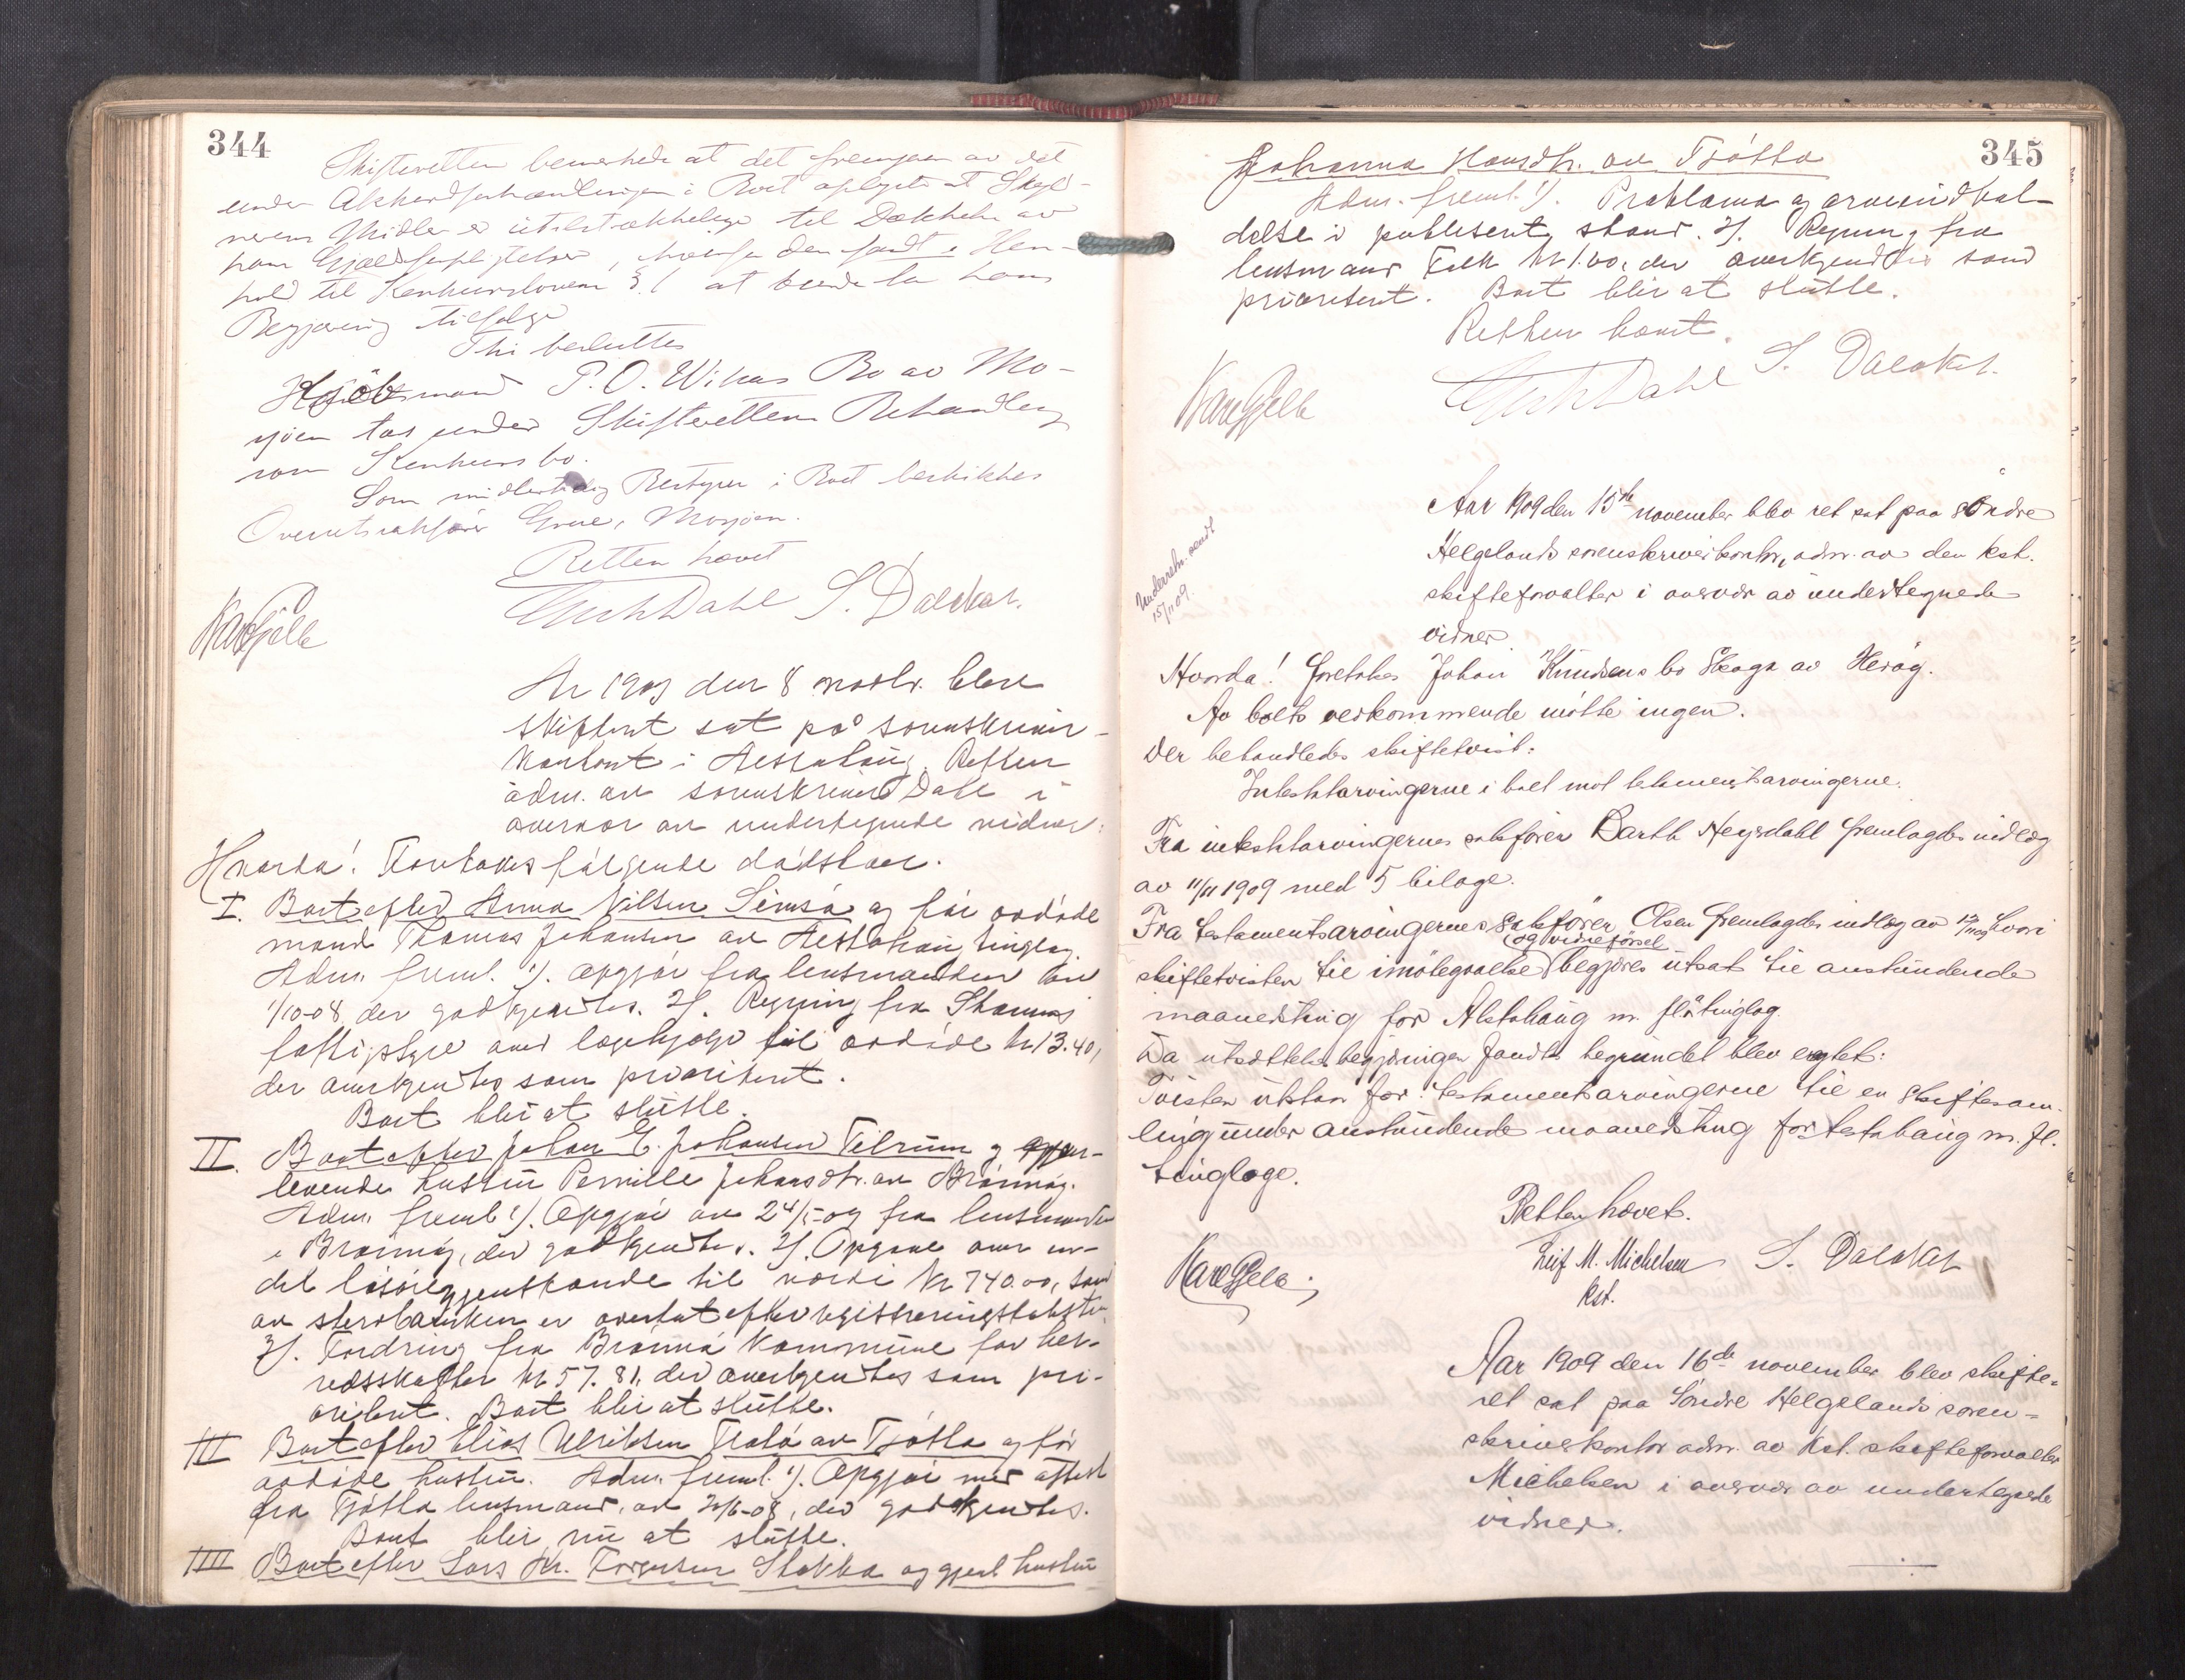 344
Skifteretten bemerkede at det fremgaar av det
under Akkordforhandlingen i Boet oplyste at Skyld-
nerens Midler er utilstrækkelige til Dækkelse av
hans Gjældsforpligtelser, hvorfor den fandt i Hen-
hold til Konkursloven § 1 at burde ta hans
Begjæring tilfølge
Thi besluttes
Kjøbmand P. O. Wikas Bo av Mo-
sjøen tas under Skifterettens Behandling
som Konkursbo.
Som midlertidig Bestyrer i Boet beskikkes
Overretssakfører Grue, Mosjøen.
Retten hævet
Dahl S. Dalekar.
Ar 1909 den 8 novbr. blev
skifteret sat på sorenskriver-
kontoret i Alstahaug. Retten
adm. av sorenskriver Dahl i
overvær av undertegnede vidner:
Hvorda! Foretokes følgende dødsboer.
I. Boet efter Anna Nilsen Simsø og før avdøde
mand Thomas Johansen av Alstahaug tinglag.
Adm. freml. 1). Opgjør fra lensmanden av
1/10-08, der godkjendtes. 2). Regning fra Stamnes
fattigstyre anr lægehjælp til avdøde kr. 13.40,
der anerkjendtes som prioritert.
Boet blir at slutte.
II. Boet efter Johan E. Johansen Tilrum og gjen-
levende hustru Pernille Johansdtr. av Brønnøy.
Adm. freml. 1). Opgjør av 24/5-09 fra lensmanden
i Brønnøy, der godkjendtes. 2). Opgave over en-
del løsøregjenstande til værdi kr 740.00, som
av stervboenken er overtat efter registreringstaksten.
3). Fordring fra Brønnø kommune for her-
redsskatter kr. 57.81, der anerkjendtes som pri-
oritert. Boet blir at slutte.
III Boet efter Elias Ulriksen Tralø av Tjøtta og før
avdøde hustru. Adm. freml. 1). Opgjør med attest
fra Tjøtta lensmand, av 20/6-08, der godkjendtes.
Boet blir nu at slutte.
IIII Boet efter Lars Kr. Torgersen Stokka og gjenl hustru
345
Johanna Hansdtr. av Tjøtta
Adm. freml. 1). Proklama og arveindkal-
delse i publisert stand. 2). Regning fra
lensmand Falk kr 1.00, der anerkjendtes som
prioritert. Boet blir at slutte.
Retten hævet.
Dahl S. Dalekar.
Underretn. sendt
15/11 09.
Aar 1909 den 15de november blev ret sat paa søndre
Helgelands sorenskriverkontor, adm. av den kst.
skifteforvalter i overvær av undertegnede
vidner.
Hvorda! foretokes Johan Knudsens bo Skoga av Herøy.
Av boets vedkommende møtte ingen.
Der behandledes skiftetvist:
Intestatarvingerne i boet mot testamentsarvingerne.
Fra intestatarvingernes sakfører Barth Heyerdahl fremlagdes indlæg
av 11/11 1909 med 5 bilage.
Fra testamentsarvingernes sakfører Olsen fremlagdes indlæg av 12/11 09 hvori
og vidneførsel
skiftetvisten til imøtegaaelse begjæres utsat til anstundende
maanedsting for Alstahaug m. fl. tinglag.
Da utsættelsesbegjæringen fandtes begrundet blev eragtet:
Tvisten utstaar for testamentsarvingerne til en skiftesam-
ling under anstundende maanedsting for Alstahaug m. fl.
tinglage.
Retten hævet.
Leif M. Michelsen S. Dalekar
kst.
Aar 1909 den 16de november blev skifte-
ret sat paa Søndre Helgelands soren-
skriverkontor adm. av kst. skifteforvalter
Michelsen i overvær av undertegnede
vidner.